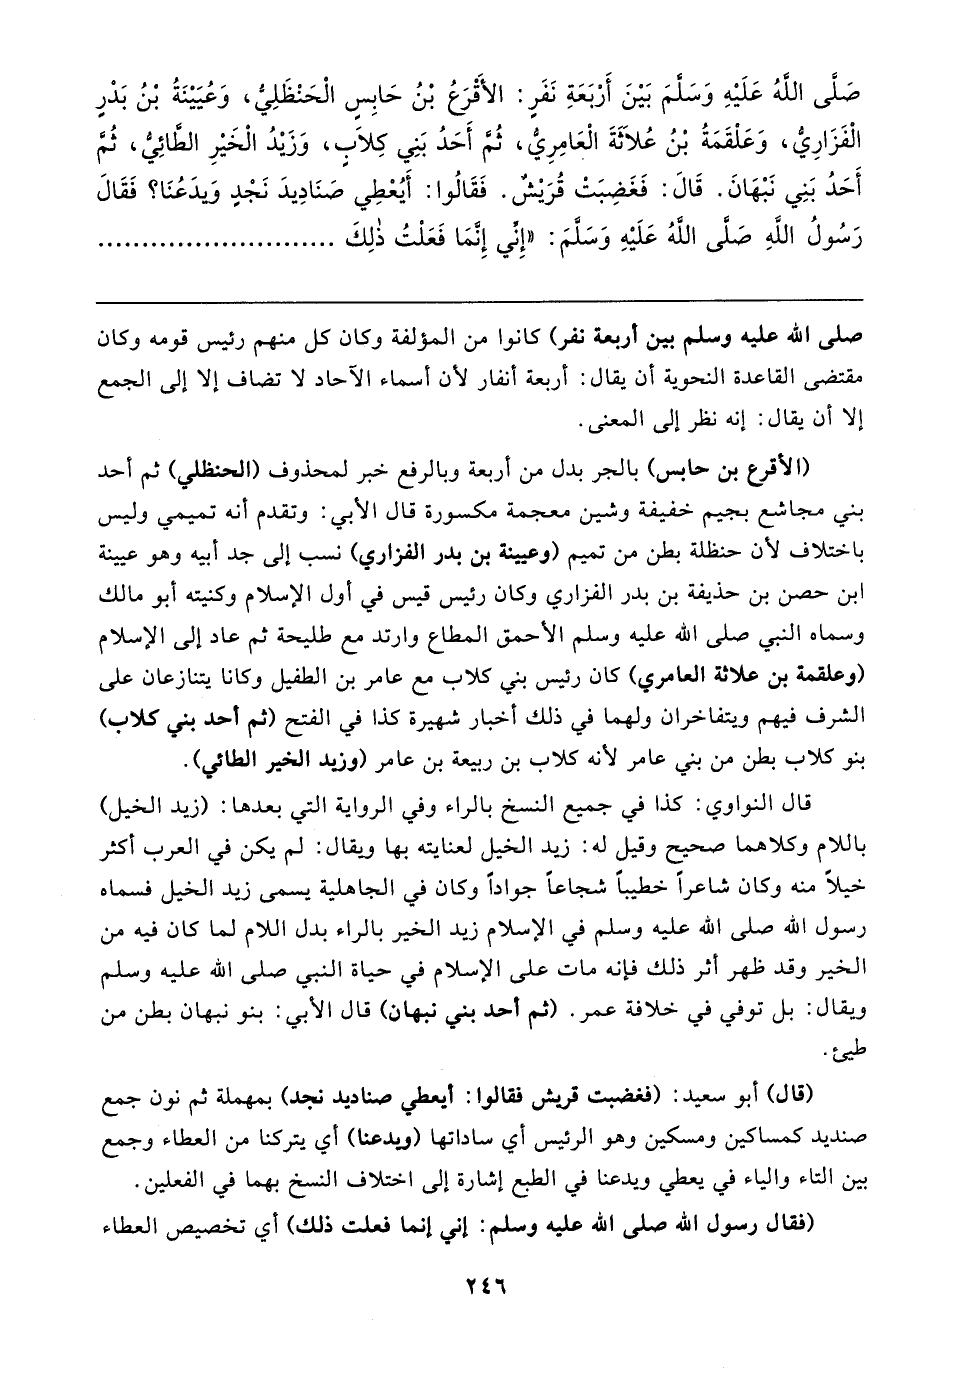 صَلَّى اللَّهُ عَلَيْهِ وَسَلَّمَ بَيْنَ أَرْبَعَةِ نَفَرٍ: الأَقْرَعُ بْنُ حَابِسٍ الْحَنْظَلِيُّ، وَعُيَيْنَةُ بْنُ بَدْرٍ
الْفَزَارِيُّ، وَعَلْقَمَةُ بْنُ عُلَاثَةَ الْعَامِرِيُّ، ثُمَّ أَحَدُ بَنِي كِلَابٍ، وَزَيْدُ الْخَيْرِ الطَّائِيُّ، ثُمَّ
أَحَدُ بَنِي نَبْهَانَ. قَالَ: فَغَضِبَتْ قُرَيْشٌ. فَقَالُوا: أَيُعْطِي صَنَادِيدَ نَجْدٍ وَيَدَعُنَا؟ فَقَالَ
رَسُولُ اللَّهِ صَلَّى اللَّهُ عَلَيْهِ وَسَلَّمَ: «إِنِّي إِنَّمَا فَعَلْتُ ذٰلِكَ ...........................
صلى الله عليه وسلم بين أربعة نفر) كانوا من المؤلفة وكان كل منهم رئيس قومه وكان
مقتضى القاعدة النحوية أن يقال: أربعة أنفار لأن أسماء الآحاد لا تضاف إلا إلى الجمع
إلا أن يقال: إنه نظر إلى المعنى.
(الأقرع بن حابس) بالجر بدل من أربعة وبالرفع خبر لمحذوف (الحنظلي) ثم أحد
بني مجاشع بجيم خفيفة وشين معجمة مكسورة قال الأبي: وتقدم أنه تميمي وليس
باختلاف لأن حنظلة بطن من تميم (وعيينة بن بدر الفزاري) نسب إلى جد أبيه وهو عيينة
ابن حصن بن حذيفة بن بدر الفزاري وكان رئيس قيس في أول الإسلام وكنيته أبو مالك
وسماه النبي صلى الله عليه وسلم الأحمق المطاع وارتد مع طليحة ثم عاد إلى الإسلام
(وعلقمة بن علاثة العامري) كان رئيس بني كلاب مع عامر بن الطفيل وكانا يتنازعان على
الشرف فيهم ويتفاخران ولهما في ذلك أخبار شهيرة كذا في الفتح (ثم أحد بني كلاب)
بنو كلاب بطن من بني عامر لأنه كلاب بن ربيعة بن عامر (وزيد الخير الطائي).
قال النواوي: كذا في جميع النسخ بالراء وفي الرواية التي بعدها: (زيد الخيل)
باللام وكلاهما صحيح وقيل له: زيد الخيل لعنايته بها ويقال: لم يكن في العرب أكثر
خيلاً منه وكان شاعراً خطيباً شجاعاً جواداً وكان في الجاهلية يسمى زيد الخيل فسماه
رسول الله صلى الله عليه وسلم في الإسلام زيد الخير بالراء بدل اللام لما كان فيه من
الخير وقد ظهر أثر ذلك فإنه مات على الإسلام في حياة النبي صلى الله عليه وسلم
ويقال: بل توفي في خلافة عمر. (ثم أحد بني نبهان) قال الأبي: بنو نبهان بطن من
طيئ.
(قال) أبو سعيد: (فغضبت قريش فقالوا: أيعطي صناديد نجد) بمهملة ثم نون جمع
صنديد كمساكين ومسكين وهو الرئيس أي ساداتها (ويدعنا) أي يتركنا من العطاء وجمع
بين التاء والياء في يعطي ويدعنا في الطبع إشارة إلى اختلاف النسخ بهما في الفعلين.
(فقال رسول الله صلى الله عليه وسلم: إني إنما فعلت ذلك) أي تخصيص العطاء
٢٤٦